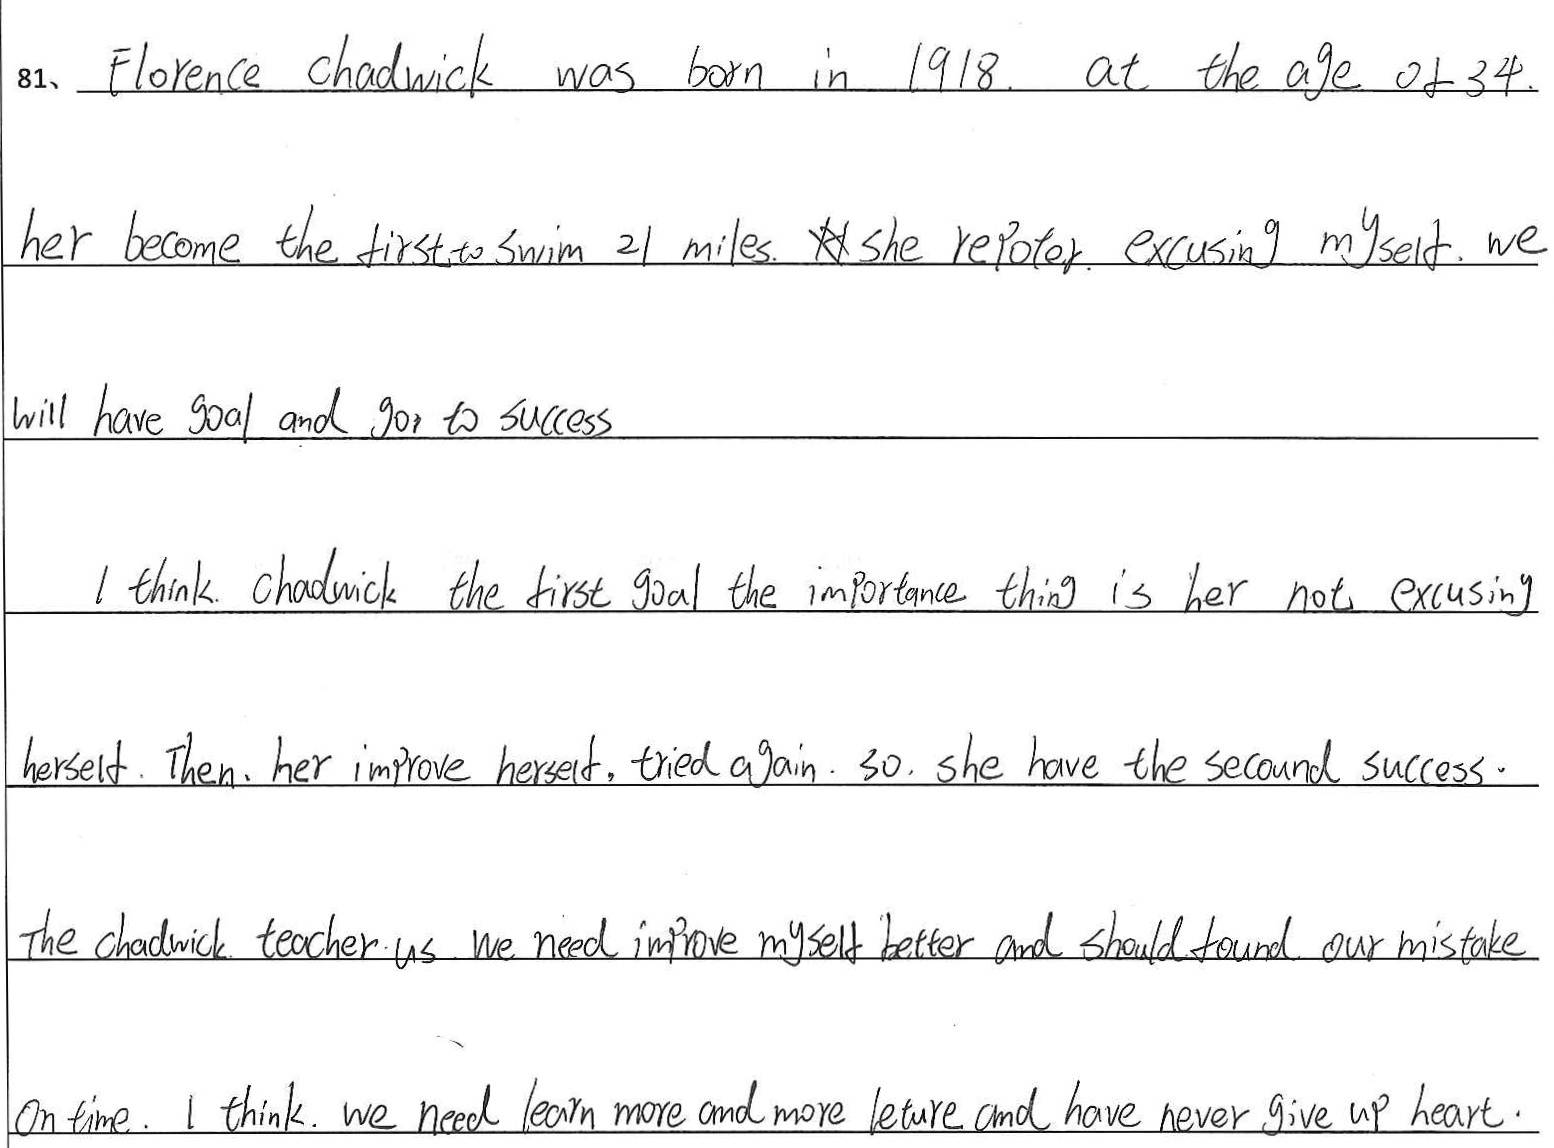 81、 Florence chadwick was born in 1918. at the age of 34.
her become the first to swim 21 miles. she repoter. excusing myself. we
will have goal and go to success
I think. chadwick the first goal the importance thing is her not excusing
herself. Then. her improve herself, tried again. so. she have the secound success.
The chadwick teacher us we need improve myself better and should found our mistake
On time. I think. we need learn more and more leture and have never give up heart.